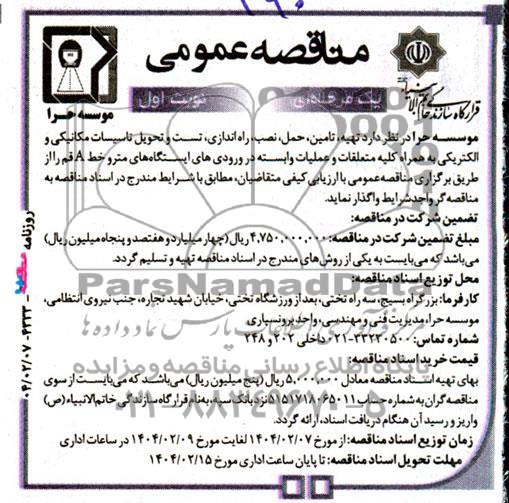 مناقصه عمومی
قرارگاه سازندگی خاتم الانبیاء
موسسه حرا
یک مرحله‌ای
نوبت اول
موسسه حرا در نظر دارد تهیه، تامین، حمل، نصب، راه اندازی، تست و تحویل تاسیسات مکانیکی و
الکتریکی به همراه کلیه متعلقات و عملیات وابسته در ورودی های ایستگاه‌های مترو خط A قم را از
طریق برگزاری مناقصه عمومی با ارزیابی کیفی متقاضیان، مطابق با شرایط مندرج در اسناد مناقصه به
مناقصه گر واجد شرایط واگذار نماید.
تضمین شرکت در مناقصه:
مبلغ تضمین شرکت در مناقصه: ۴,۷۵۰,۰۰۰,۰۰۰ ریال (چهار میلیارد و هفتصد و پنجاه میلیون ریال)
می‌باشد که می‌بایست به یکی از روش‌های مندرج در اسناد مناقصه تهیه و تسلیم گردد.
محل توزیع اسناد مناقصه:
کارفرما: بزرگراه بسیج، سه راه تختی، بعد از ورزشگاه تختی، خیابان شهید تجاره، جنب نیروی انتظامی،
موسسه حرا، مدیریت فنی و مهندسی، واحد برونسپاری.
شماره تماس: ۳۳۲۳۰۵۰۰-۰۲۱ داخلی ۲۰۲ و ۲۴۸
قیمت خرید اسناد مناقصه:
بهای تهیه اسناد مناقصه معادل ۵,۰۰۰,۰۰۰ ریال (پنج میلیون ریال) می‌باشد که می‌بایست از سوی
مناقصه گران به شماره حساب ۵۱۵۱۷۱۸۰۶۵۰۱۱ نزد بانک سپه، به نام قرارگاه سازندگی خاتم الانبیاء (ص)
واریز و رسید آن هنگام دریافت اسناد، ارائه گردد.
زمان توزیع اسناد مناقصه: از مورخ ۱۴۰۴/۰۲/۰۷ لغایت مورخ ۱۴۰۴/۰۲/۰۹ در ساعات اداری
مهلت تحویل اسناد مناقصه: تا پایان ساعت اداری مورخ ۱۴۰۴/۰۲/۱۵
روزنامه - ۴۳۳۳ - ۰۴/۰۲/۰۷
ParsNamadData
پارس نماد داده ها
پایگاه اطلاع رسانی مناقصه و مزایده
۰۲۱-۸۸۳۴۹۶۷۰-۵